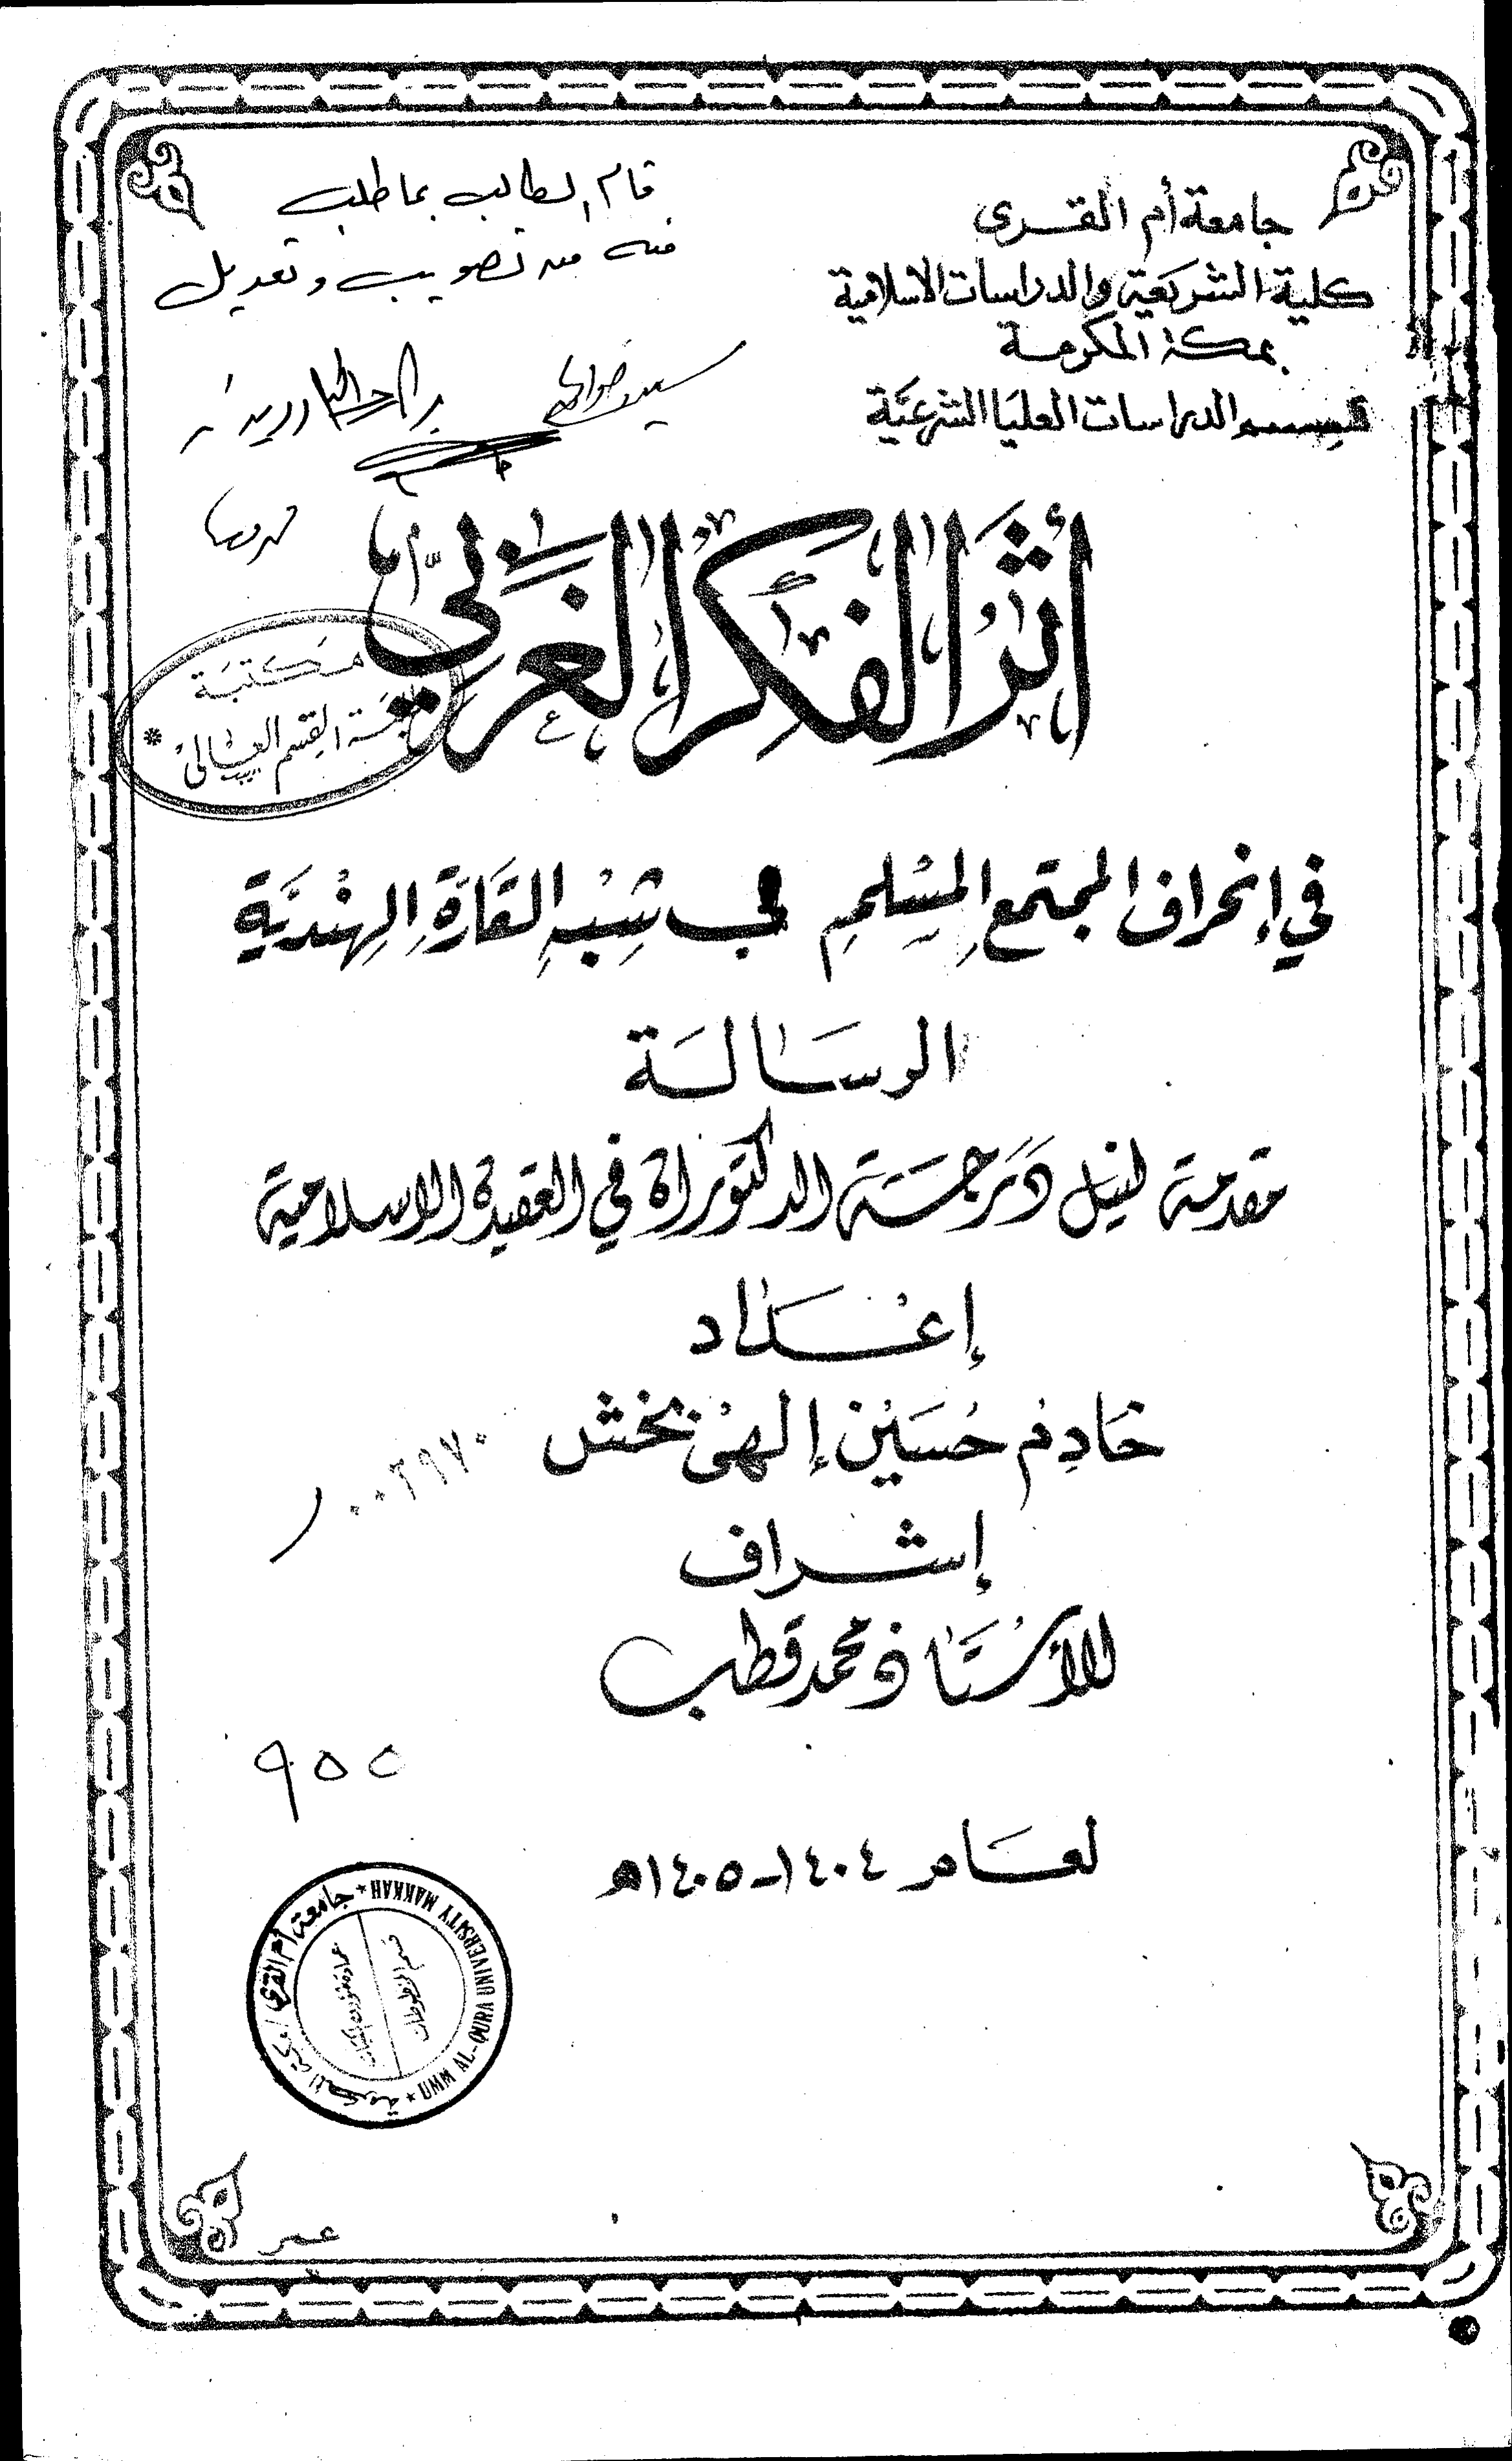 جامعة أم القرى
كلية الشريعة والدراسات الاسلامية
بمكة المكرمة
قسم الدراسات العليا الشرعية
قام الطالب بما طلب
منه من تصويب وتعديل
أثر الفكر الغربي
مكتبة
القسم العالي
في إنحراف المجتمع المسلم في شبه القارة الهندية
الرسالة
مقدمة لنيل درجة الدكتوراة في العقيدة الاسلامية
إعداد
خادم حسين إلهى بخش
٠٠٢٩٧٠
إشراف
الأستاذ محمد قطب
٩٥٥
لعام ١٤٠٤-١٤٠٥هـ
جامعة أم القرى / مكة المكرمة
UMM AL-QURA UNIVERSITY MAKKAH
عمر